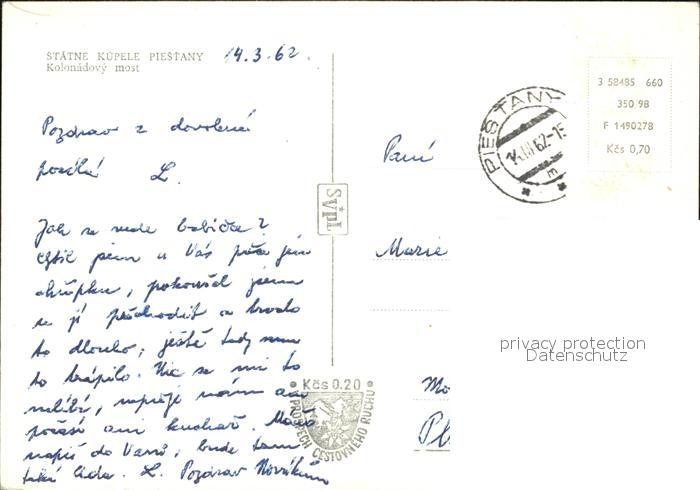 STÁTNE KÚPELE PIEŠŤANY
Kolonádový most
14.3.62.
Pozdrav z dovolené
posílá L.
Jak se vede babička?
Chtěl jsem u Vás
chřipku, pokoušel jsem
se jí přechodit a trvalo
to dlouho, ještě tady mne
to trápilo. Nic se mi to
nelíbí, nepřeje nám ani
počasí ani kuchař.
napiš do Varů, bude tam
také Áda. L. Pozdrav Novákům
SVpL
PIEŠŤANY
14.III.62-15
3 58485 660
350 98
F 1490278
Kčs 0,70
Paní
Marie
Mo
Pl
Kčs 0.20
V PROSPECH CESTOVNÉHO RUCHU
privacy protection
Datenschutz